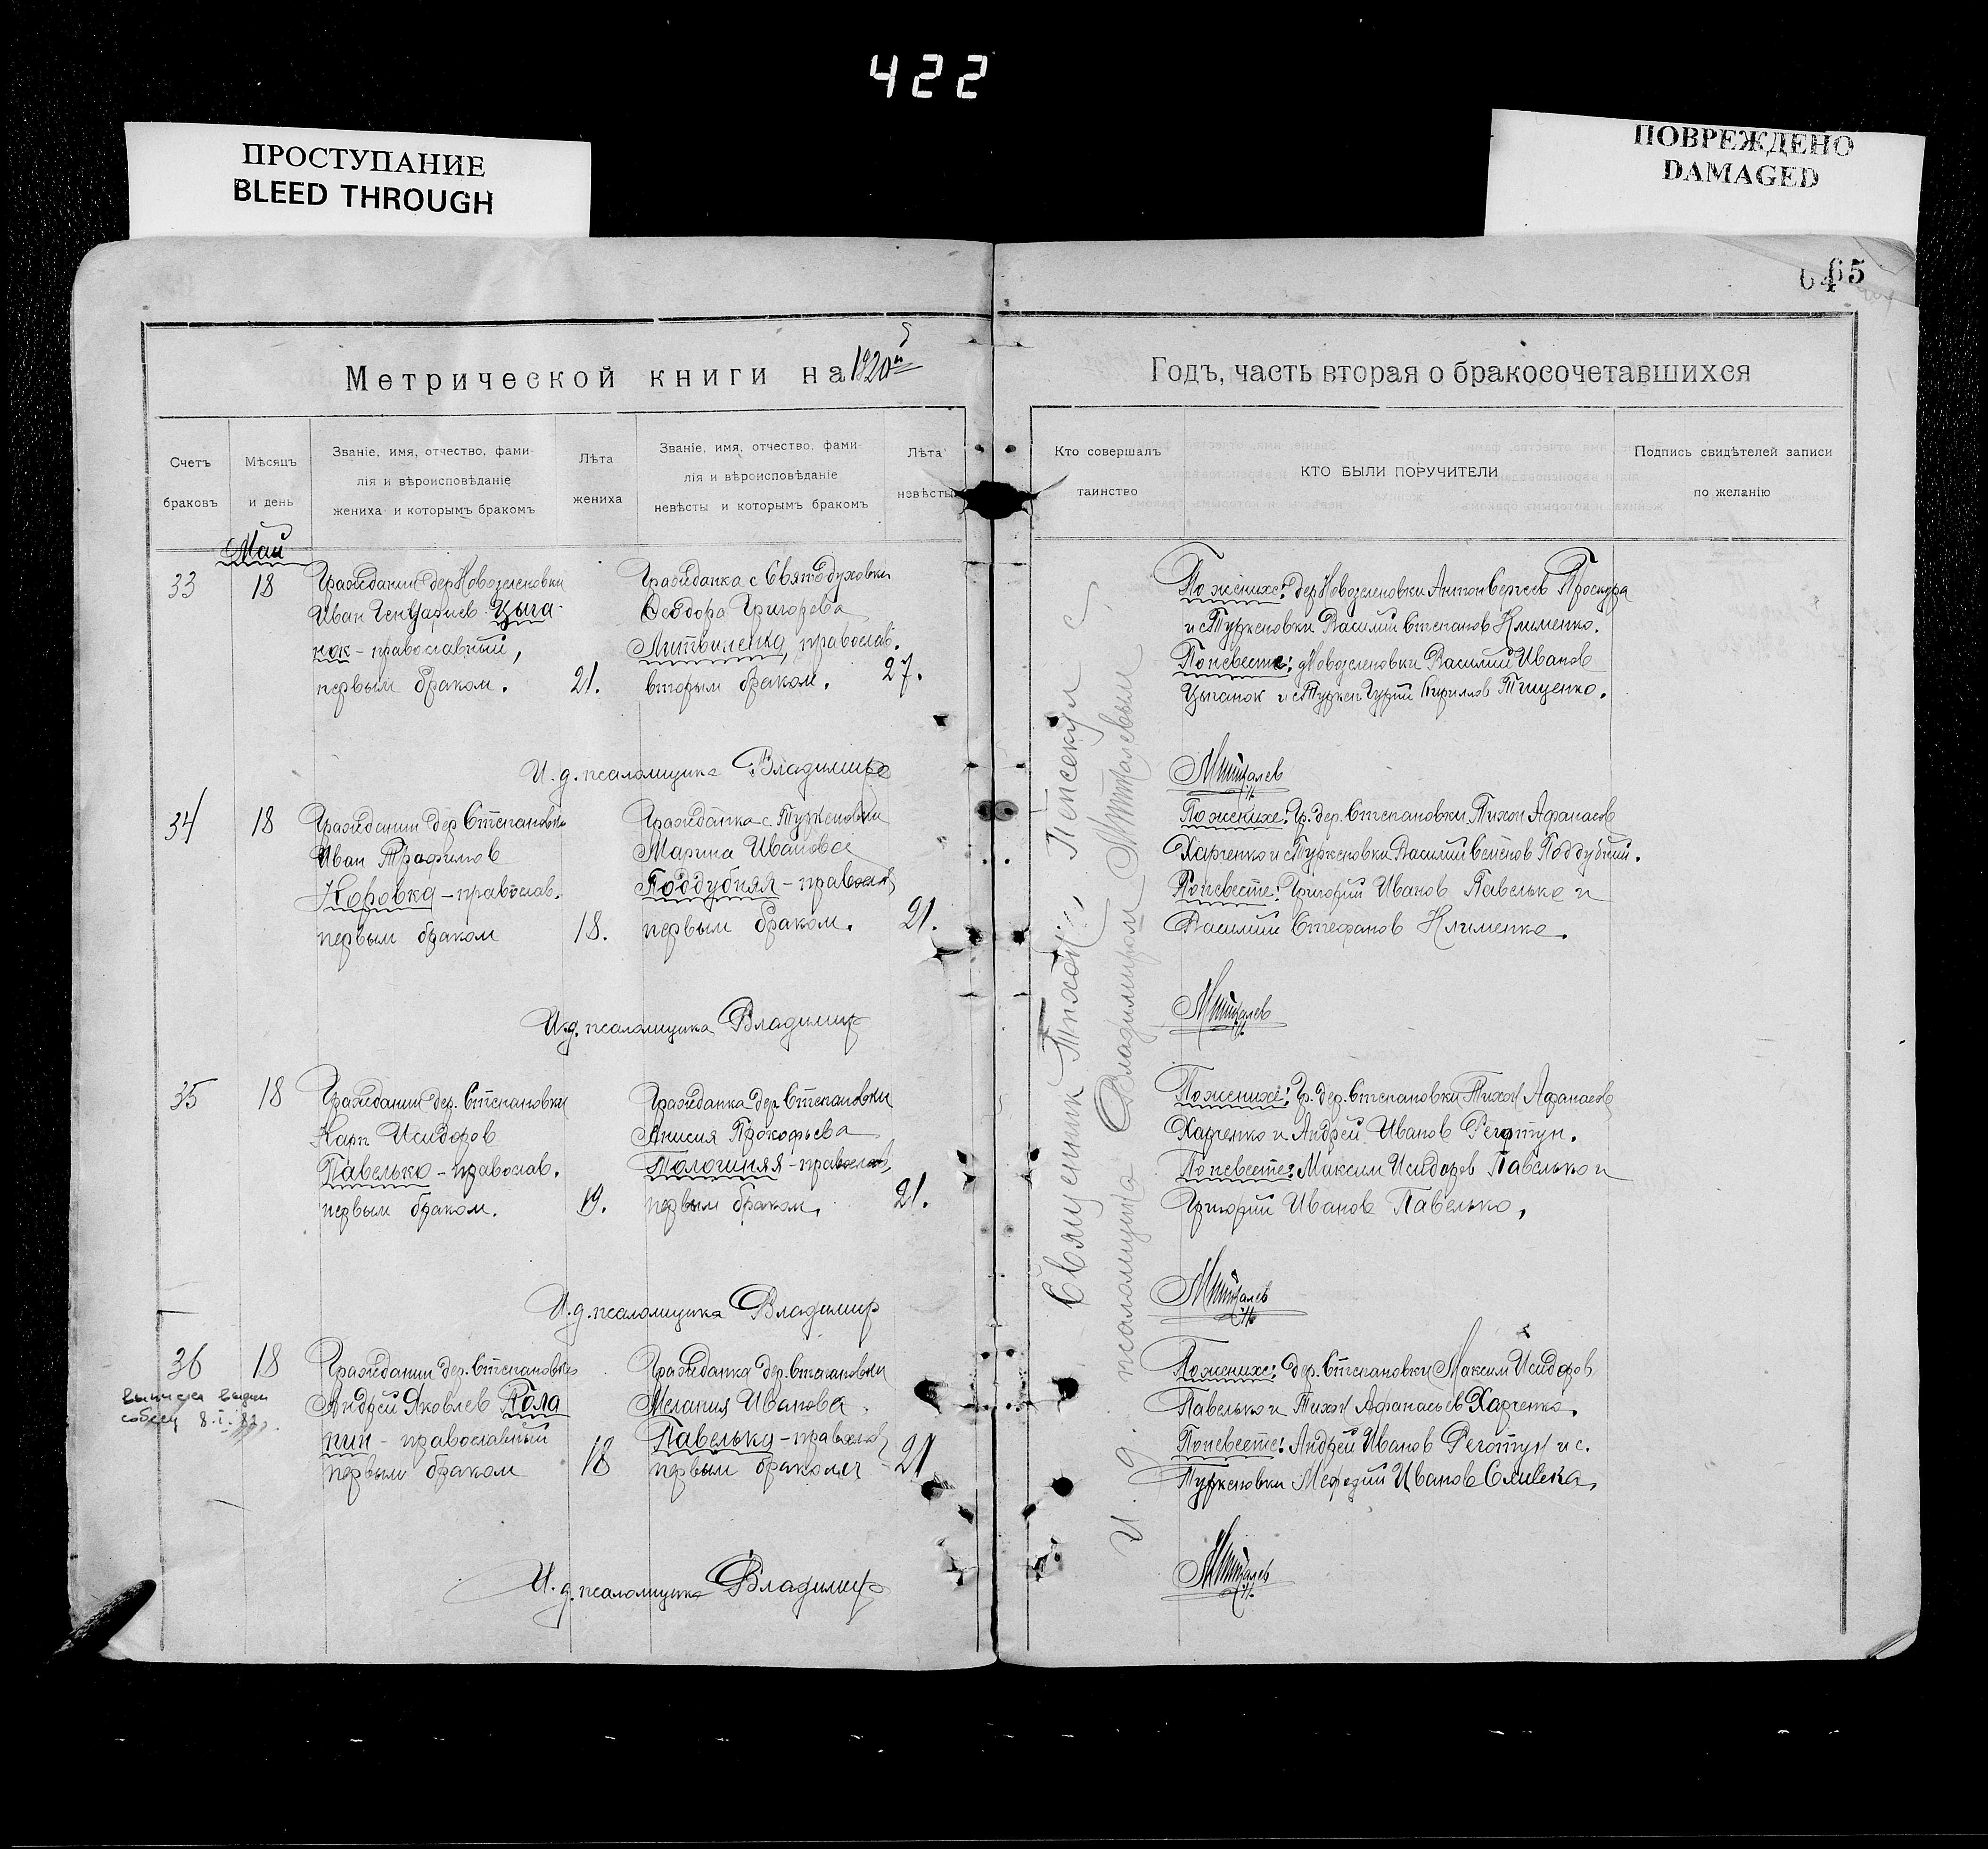 422
ПРОСТУПАНИЕ
BLEED THROUGH
ПОВРЕЖДЕНО
DAMAGED
64 65
Метрической книги на 1920й
Счетъ браковъ
Мѣсяцъ и день
Званіе, имя, отчество, фами-
лія и вѣроисповѣданіе
жениха и которымъ бракомъ
Лѣта жениха
Званіе, имя, отчество, фами-
лія и вѣроисповѣданіе
невѣсты и которымъ бракомъ
Лѣта невѣсты
Май
33 18
Гражданин дер Новозеленовки
Иван Цыга-
нок - православный,
первым браком.
21.
Гражданка с Святодуховки
Феодора Григорева
Литвиненко, православ.
вторым браком.
27.
И.д. псаломщика Владимир
34 18
Гражданин дер Степановки
Иван Трофимов
Коровка - православ.
первым браком
18.
Гражданка с. Туркеновки
Марина Иванова
Поддубняя - православ
первым браком.
21.
И.д. псаломщика Владимир
35 18
Гражданин дер. Степановки
Карп Исидоров
Павелько - православ.
первым браком.
19.
Гражданка дер Степановки
Анисия Прокофьева
- православ,
первым браком,
21.
И.д. псаломщика Владимир
36 18
8.I.82
Гражданин дер. Степановки
Андрей Яковлев
- православный
первым браком
18
Гражданка дер. Степановки
Мелания Иванова
Павелько - православ
первым браком
21
И.д. псаломщика Владимир
Годъ, часть вторая о бракосочетавшихся
Кто совершалъ таинство
КТО БЫЛИ ПОРУЧИТЕЛИ
Подпись свидѣтелей записи
по желанію
Священник с
И.д. псаломщика Владимиром
По женихе: дер Новозеленовки Антон Сергеев Проскура
и с Туркеновки Василий Степанов Клименко.
По невесте: д Новозеленовки Василий Иванов
Цыганок и с Туркен Гурий Кириллов Тищенко.
По женихе: Гр. дер. Степановки Тихон Афанасов
Харченко и с Туркеновки Василий Семенов Поддубний.
По невесте: Григорий Иванов Павелько и
Василий Стефанов Клименко.
По женихе: Гр. дер. Степановки Тихон Афанасов
Харченко и Андрей Иванов Реготун.
По невесте: Максим Исидоров Павелько и
Григорий Иванов Павелько,
По женихе: дер. Степановки Максим Исидоров
Павелько и Тихон Афанасьев Харченко.
По невесте: Андрей Иванов Реготун и с.
Туркеновки Мефодий Иванов Сливка,